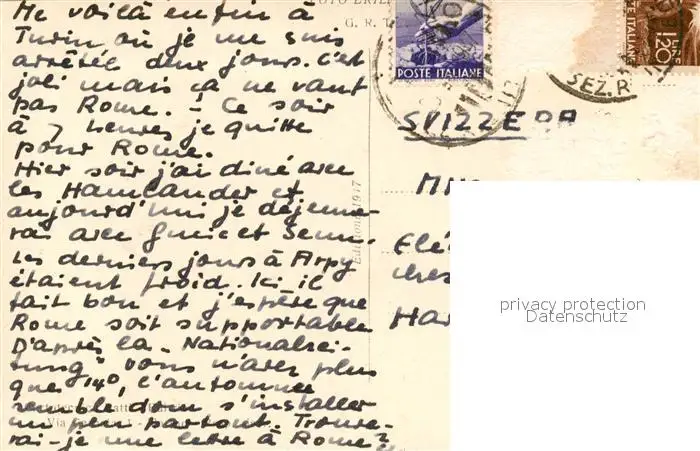 Me voilà enfin à
Turin où je me suis
arrêtée deux jours. C'est
joli mais ça ne vaut
pas Rome. – Ce soir
à 7 heures je quitte
pour Rome.
Hier soir j'ai dîné avec
les Hamlander et
aujourd'hui je déjeune-
rai avec et
Les derniers jours à Arpy
étaient froid. Ici il
fait bon et j'espère que
Rome soit supportable
D'après la „Nationalzei-
tung" vous n'avez plus
que 14°, l'automne
semble donc s'installer
un peu partout. Trouve-
rai-je une lettre à Rome?
G. R. T.
Edizione 1947
Via
POSTE ITALIANE
LIRE
1.20
POSTE ITALIANE
SEZ. R
SVIZZERA
Elé
Har
privacy protection
Datenschutz